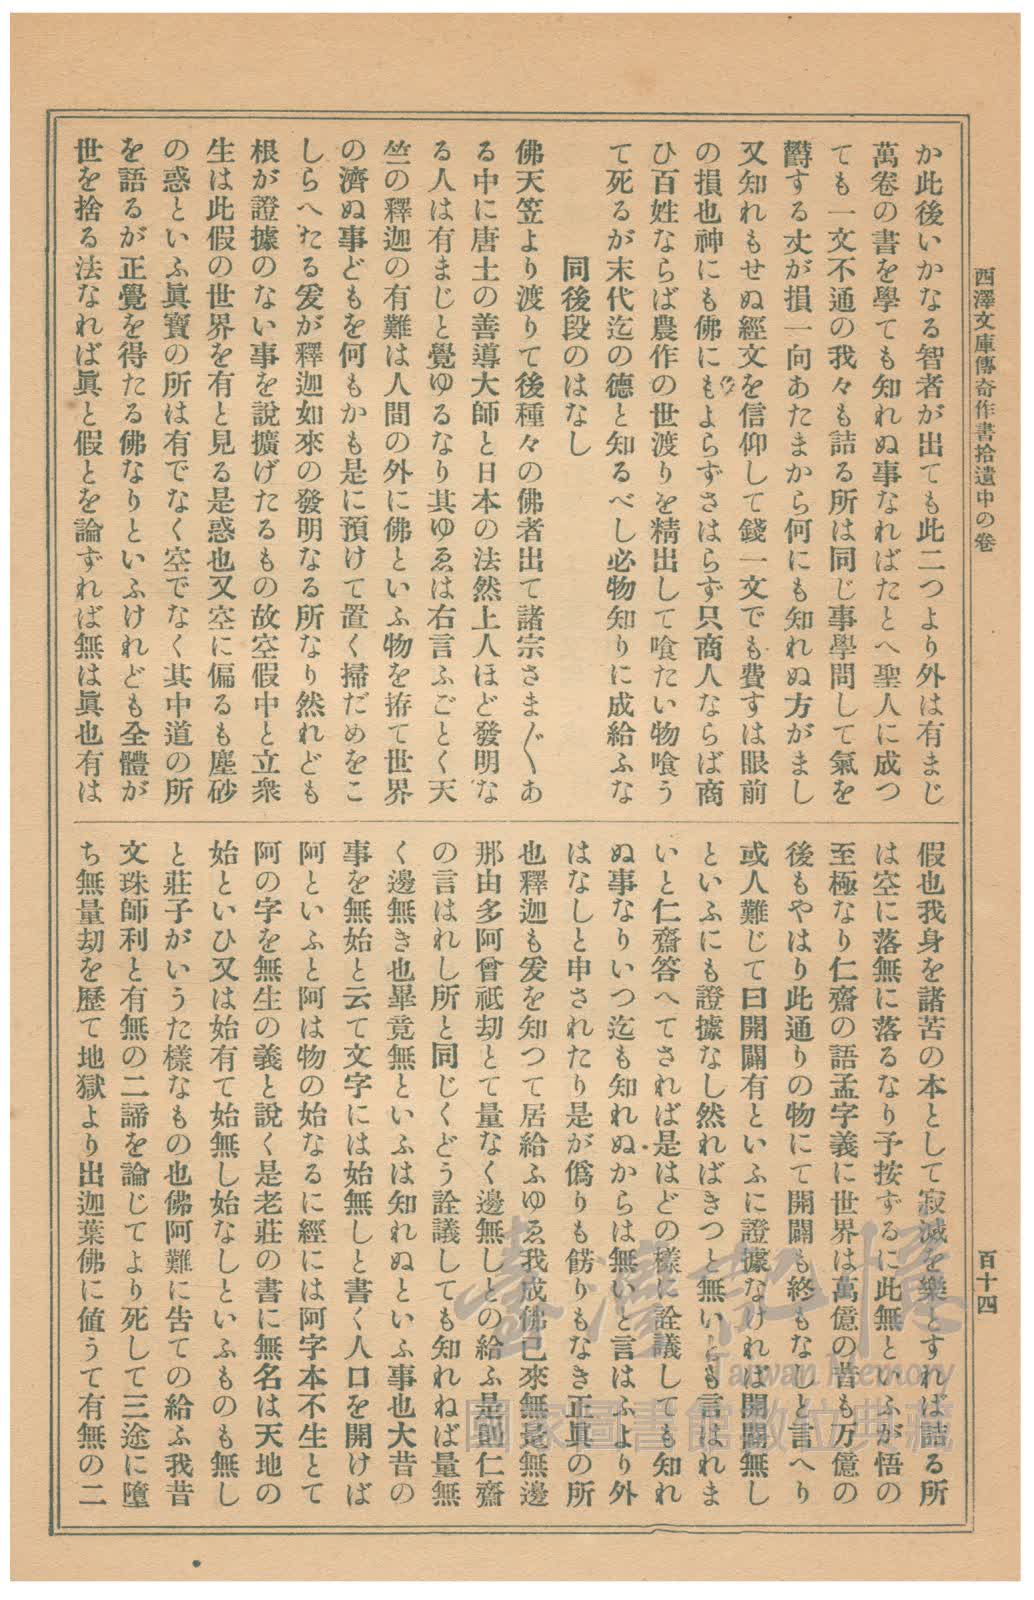 西澤文庫傳奇作書拾遺中の卷
百十四
か此後いかなる智者が出ても此二つより外は有まじ
萬卷の書を學ても知れぬ事なればたとへ聖人に成つ
ても一文不通の我々も詰る所は同じ事學問して氣を
欝する丈が損一向あたまから何にも知れぬ方がまし
又知れもせぬ經文を信仰して錢一文でも費すは眼前
の損也神にも佛にもよらずさはらず只商人ならば商
ひ百姓ならば農作の世渡りを精出して喰たい物喰う
て死るが末代迄の德と知るべし必物知りに成給ふな
同後段のはなし
佛天笠より渡りて後種々の佛者出て諸宗さま〴〵あ
る中に唐土の善導大師と日本の法然上人ほど發明な
る人は有まじと覺ゆるなり其ゆゑは右言ふごとく天
竺の釋迦の有難は人間の外に佛といふ物を拵て世界
の濟ぬ事どもを何もかも是に預けて置く掃だめをこ
しらへたる爰が釋迦如來の發明なる所なり然れども
根が證據のない事を說擴げたるもの故空假中と立衆
生は此假の世界を有と見る是惑也又空に偏るも塵砂
の惑といふ眞實の所は有でなく空でなく其中道の所
を語るが正覺を得たる佛なりといふけれども全體が
世を捨る法なれば眞と假とを論ずれば無は眞也有は
假也我身を諸苦の本として寂滅を樂とすれば詰る所
は空に落無に落るなり予按ずるに此無といふが悟の
至極なり仁齋の語孟字義に世界は萬億の昔も万億の
後もやはり此通りの物にて開闢も終もなしと言へり
或人難じて曰開闢有といふに證據なければ開闢無し
といふにも證據なし然ればきつと無いとも言はれま
いと仁齋答へてされば是はどの樣に詮議しても知れ
ぬ事なりいつ迄も知れぬからは無いと言はふより外
はなしと申されたり是が僞りも餝りもなき正眞の所
也釋迦も爰を知つて居給ふゆゑ我成佛已來無量無邊
那由多阿曾祇刧とて量なく邊無しとの給ふ是則仁齋
の言はれし所と同じくどう詮議しても知れねば量無
く邊無き也畢竟無といふは知れぬといふ事也大昔の
事を無始と云て文字には始無しと書く人口を開けば
阿といふと阿は物の始なるに經には阿字本不生とて
阿の字を無生の義と說く是老莊の書に無名は天地の
始といひ又は始有て始無し始なしといふものも無し
と莊子がいうた樣なもの也佛阿難に告ての給ふ我昔
文珠師利と有無の二諦を論じてより死して三途に墮
ち無量刧を歷て地獄より出迦葉佛に値うて有無の二
臺灣記憶
Taiwan Memory
國家圖書館數位典藏